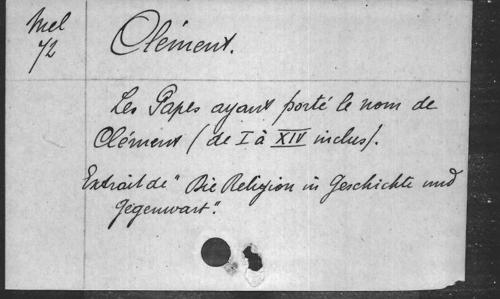 Mel
72
Clément.
Les Papes ayant porté le nom de
Clément (de I à XIV inclus).
Extrait de "Die Religion in Geschichte und
Gegenwart".